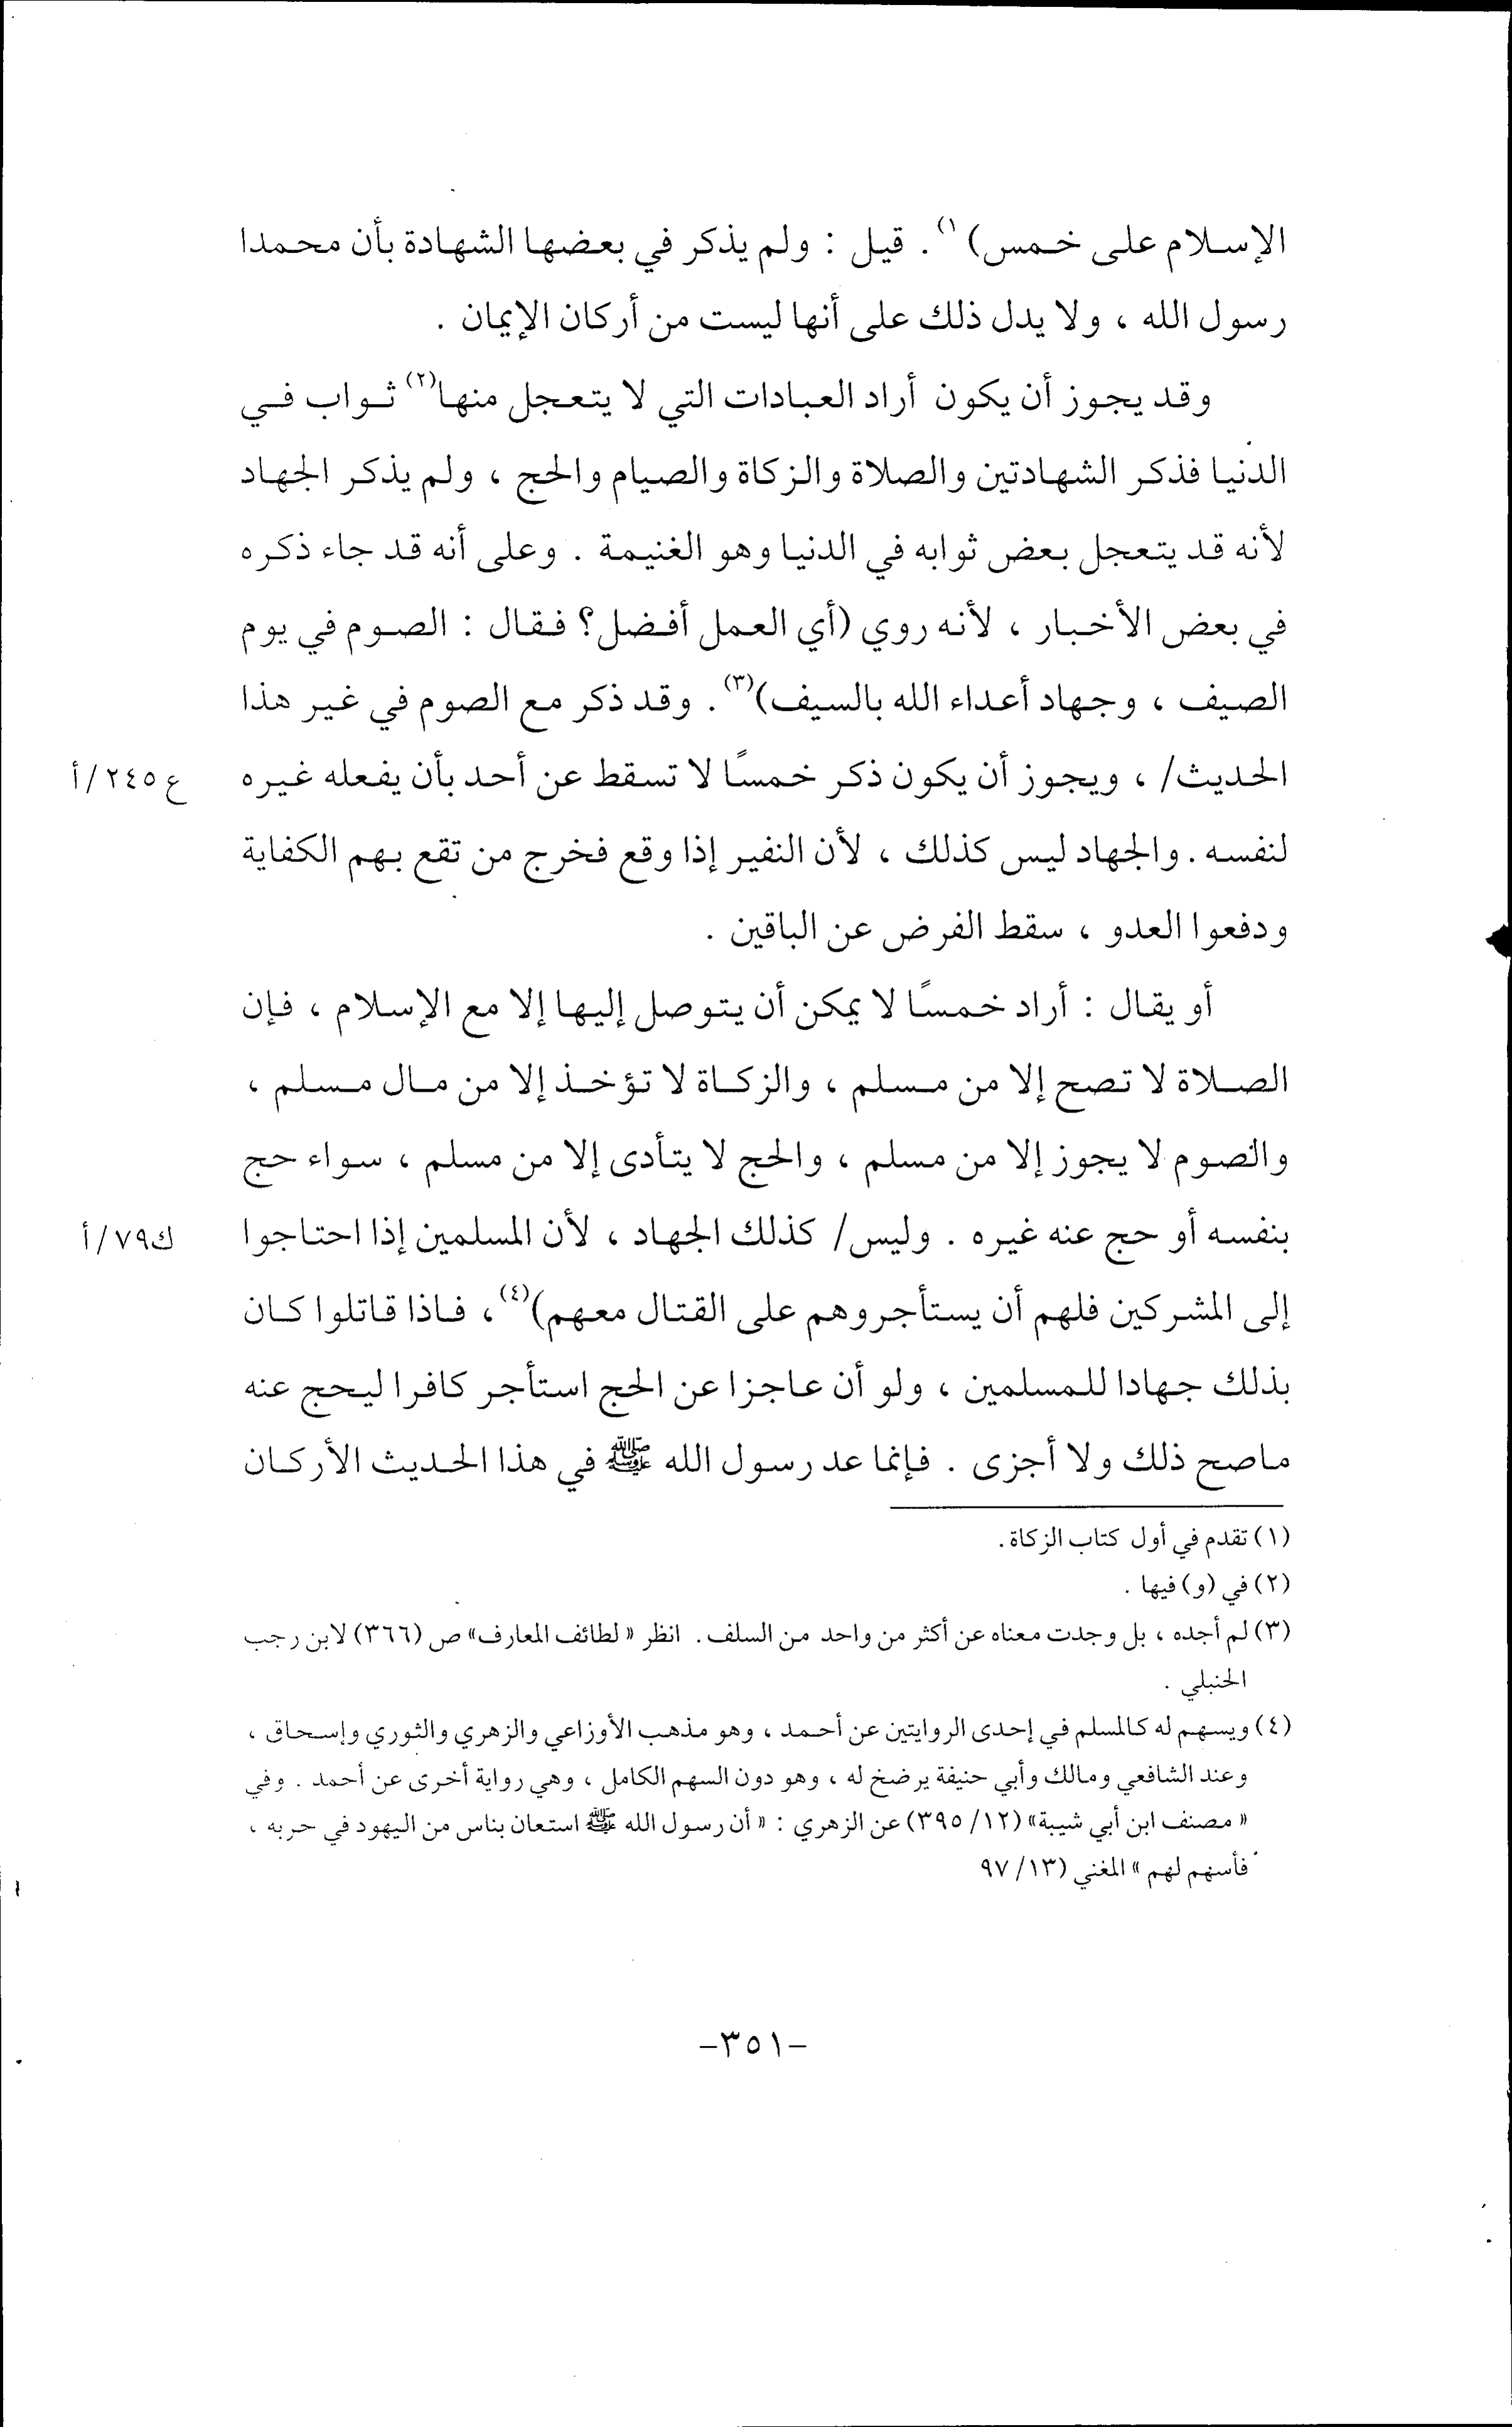 الإسلام على خمس)(١) . قيل : ولم يذكر في بعضها الشهادة بأن محمدا
رسول الله ، ولا يدل ذلك على أنها ليست من أركان الإيمان .
وقد يجوز أن يكون أراد العبادات التي لا يتعجل منها(٢) ثواب في
الدنيا فذكر الشهادتين والصلاة والزكاة والصيام والحج ، ولم يذكر الجهاد
لأنه قد يتعجل بعض ثوابه في الدنيا وهو الغنيمة . وعلى أنه قد جاء ذكره
في بعض الأخبار ، لأنه روي (أي العمل أفضل؟ فقال : الصوم في يوم
الصيف ، وجهاد أعداء الله بالسيف)(٣) . وقد ذكر مع الصوم في غير هذا
الحديث/ ، ويجوز أن يكون ذكر خمسًا لا تسقط عن أحد بأن يفعله غيره
ع٢٤٥/أ
لنفسه . والجهاد ليس كذلك ، لأن النفير إذا وقع فخرج من تقع بهم الكفاية
ودفعوا العدو ، سقط الفرض عن الباقين .
أو يقال : أراد خمسًا لا يمكن أن يتوصل إليها إلا مع الإسلام ، فإن
الصلاة لا تصح إلا من مسلم ، والزكاة لا تؤخذ إلا من مال مسلم ،
والصوم لا يجوز إلا من مسلم ، والحج لا يتأدى إلا من مسلم ، سواء حج
بنفسه أو حج عنه غيره . وليس/ كذلك الجهاد ، لأن المسلمين إذا احتاجوا
ك٧٩/أ
إلى المشركين فلهم أن يستأجروهم على القتال معهم)(٤) ، فاذا قاتلوا كان
بذلك جهادا للمسلمين ، ولو أن عاجزا عن الحج استأجر كافرا ليحج عنه
ماصح ذلك ولا أجزى . فإنما عد رسول الله ﷺ في هذا الحديث الأركان
(١) تقدم في أول كتاب الزكاة .
(٢) في (و) فيها .
(٣) لم أجده ، بل وجدت معناه عن أكثر من واحد من السلف . انظر « لطائف المعارف» ص (٣٦٦) لابن رجب
الحنبلي .
(٤) ويسهم له كالمسلم في إحدى الروايتين عن أحمد ، وهو مذهب الأوزاعي والزهري والثوري وإسحاق ،
وعند الشافعي ومالك وأبي حنيفة يرضخ له ، وهو دون السهم الكامل ، وهي رواية أخرى عن أحمد . وفي
« مصنف ابن أبي شيبة» (١٢/ ٣٩٥) عن الزهري : « أن رسول الله ﷺ استعان بناس من اليهود في حربه ،
فأسهم لهم » المغني (١٣/ ٩٧
-٣٥١-